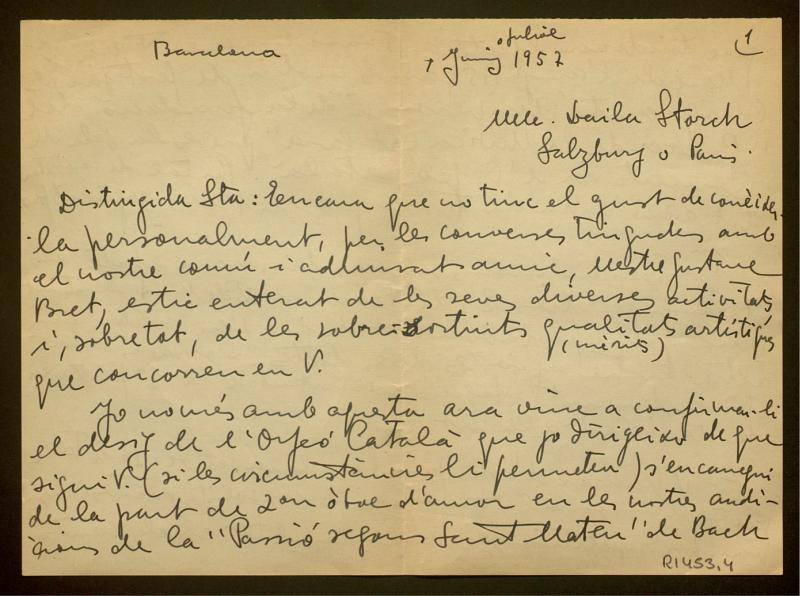 1
Barcelona
o juliol
7 Juny 1957
Mlle. Laila Storch
Salzburg o Paris.
Distingida Sta: Encara que no tinc el gust de conèixer-
-la personalment, per les converses tingudes amb
el nostre comú i admirat amic, Mestre Gustave
Bret, estic enterat de les seves diverses activitats
i, sobretot, de les sobresortints qualitats artístiques
(mèrits)
que concorren en V.
Jo només amb aquesta ara vinc a confirmar-li
el desig de l'Orfeó Català que jo dirigeixo de que
sigui V. (si les circumstàncies li permeten) s'encarregui
de la part de 2on òboe d'amor en les nostres audi-
cions de la "Passió segons Sant Mateu" de Bach
R1453,4